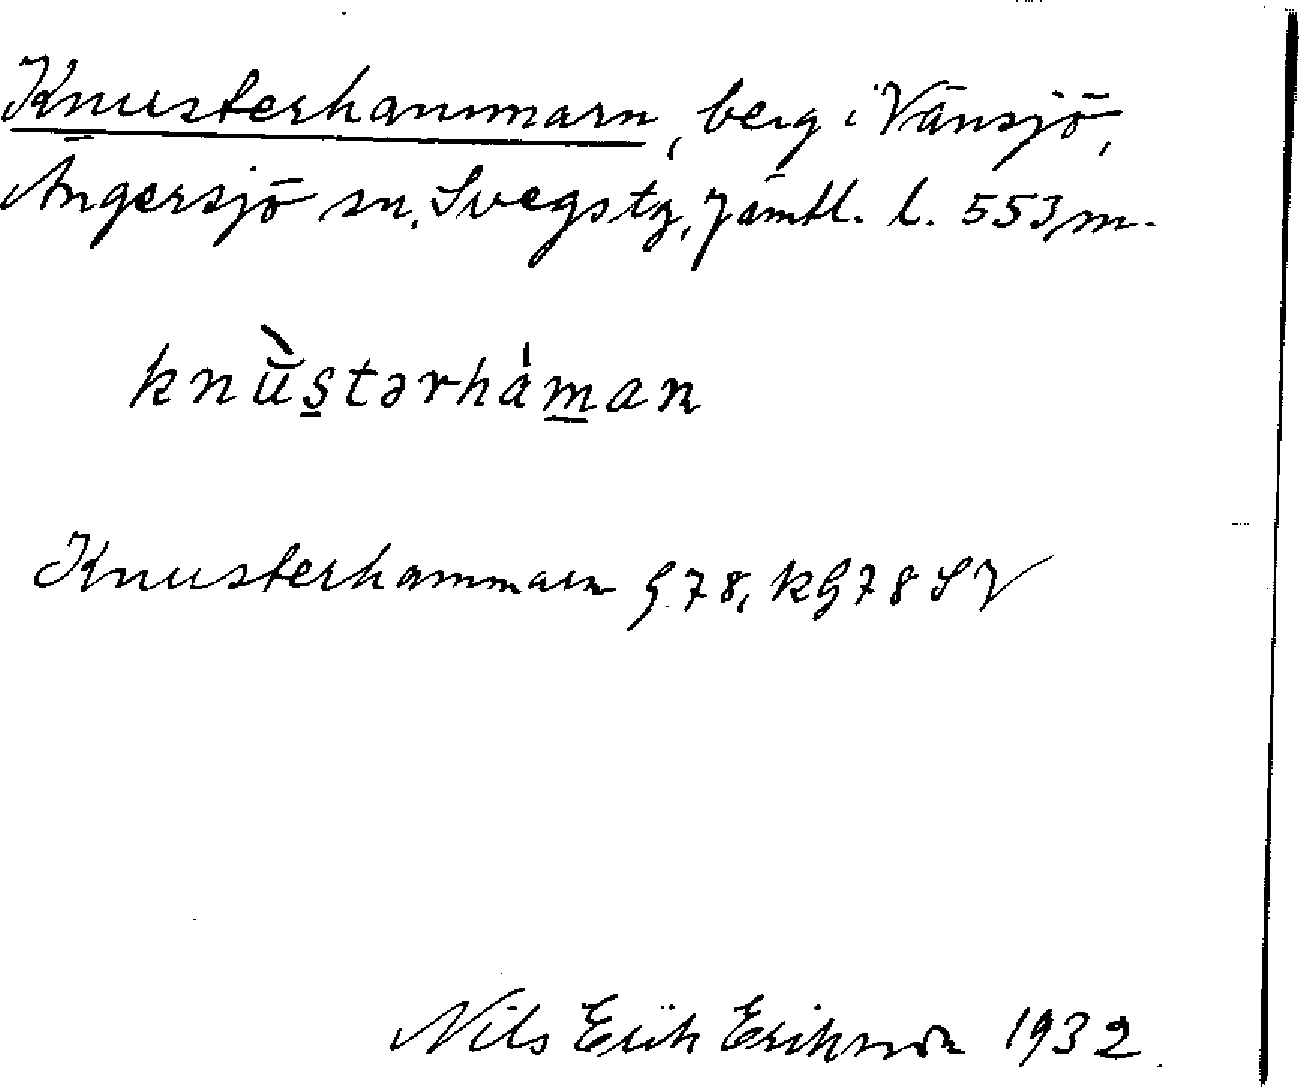 Knusterhammarn, berg i Vänsjö,
Ängersjö sn, Svegs tg, Jämtl. l. 553 m.
knùstərháman
Knusterhammarn G 78, KG 78 SV
Nils Erik Erikson 1932